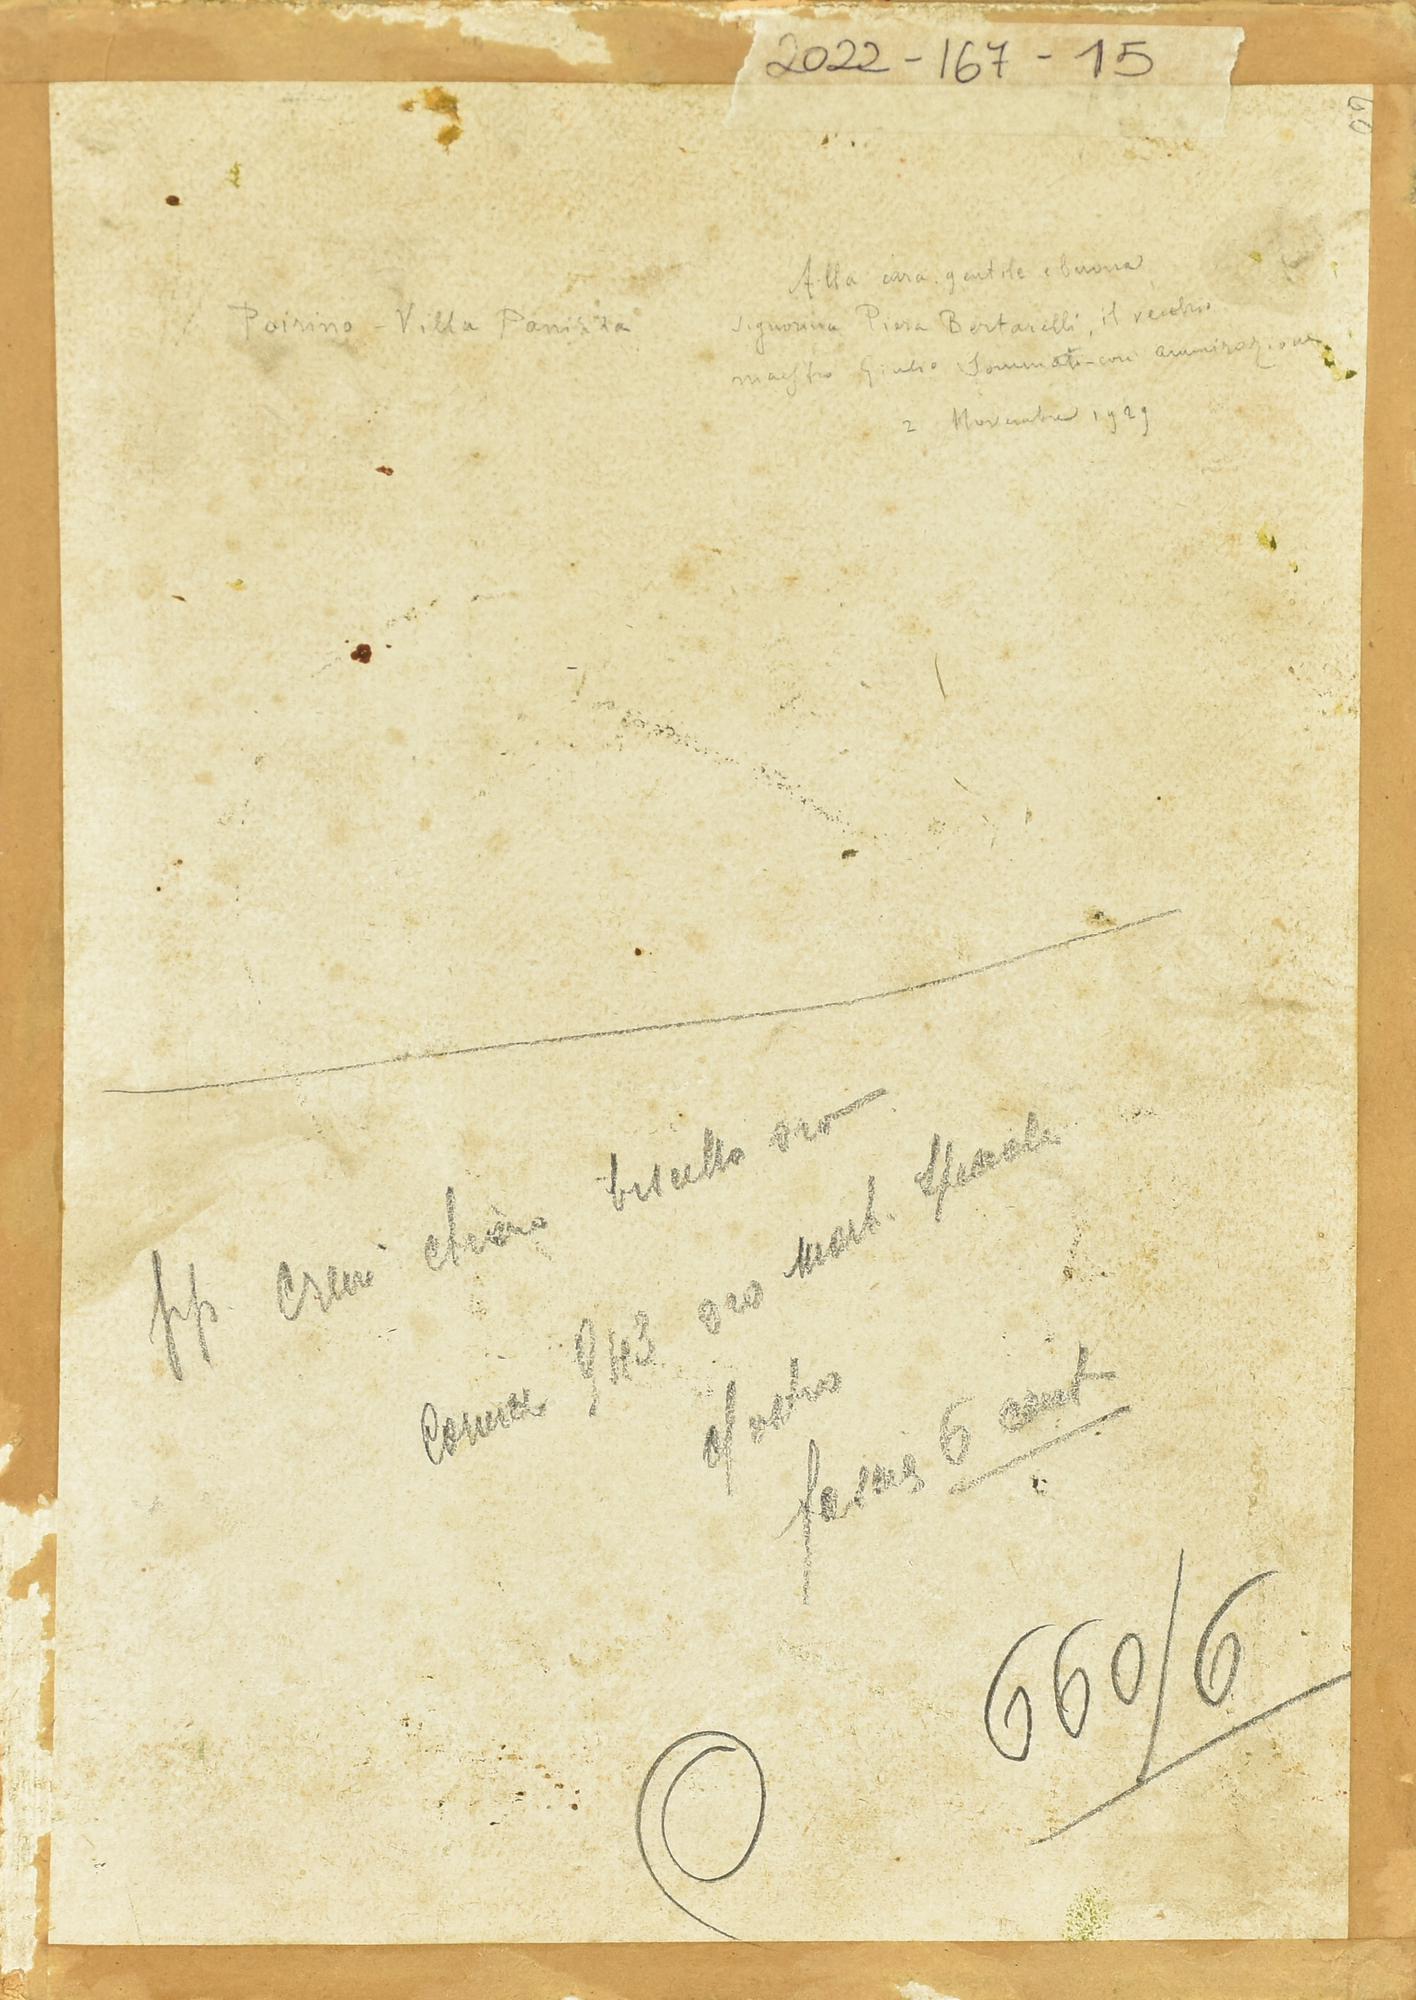 2022-167-15
60
Poirino - Villa Panizza
Alla cara gentile e buona
signorina Piera Bertarelli, il vecchio
maestro Giulio Sommati - con ammirazione
2 Novembre 1929
pp. crem chiaro biscotto oro
943 oro speciale
6 cent
660/6